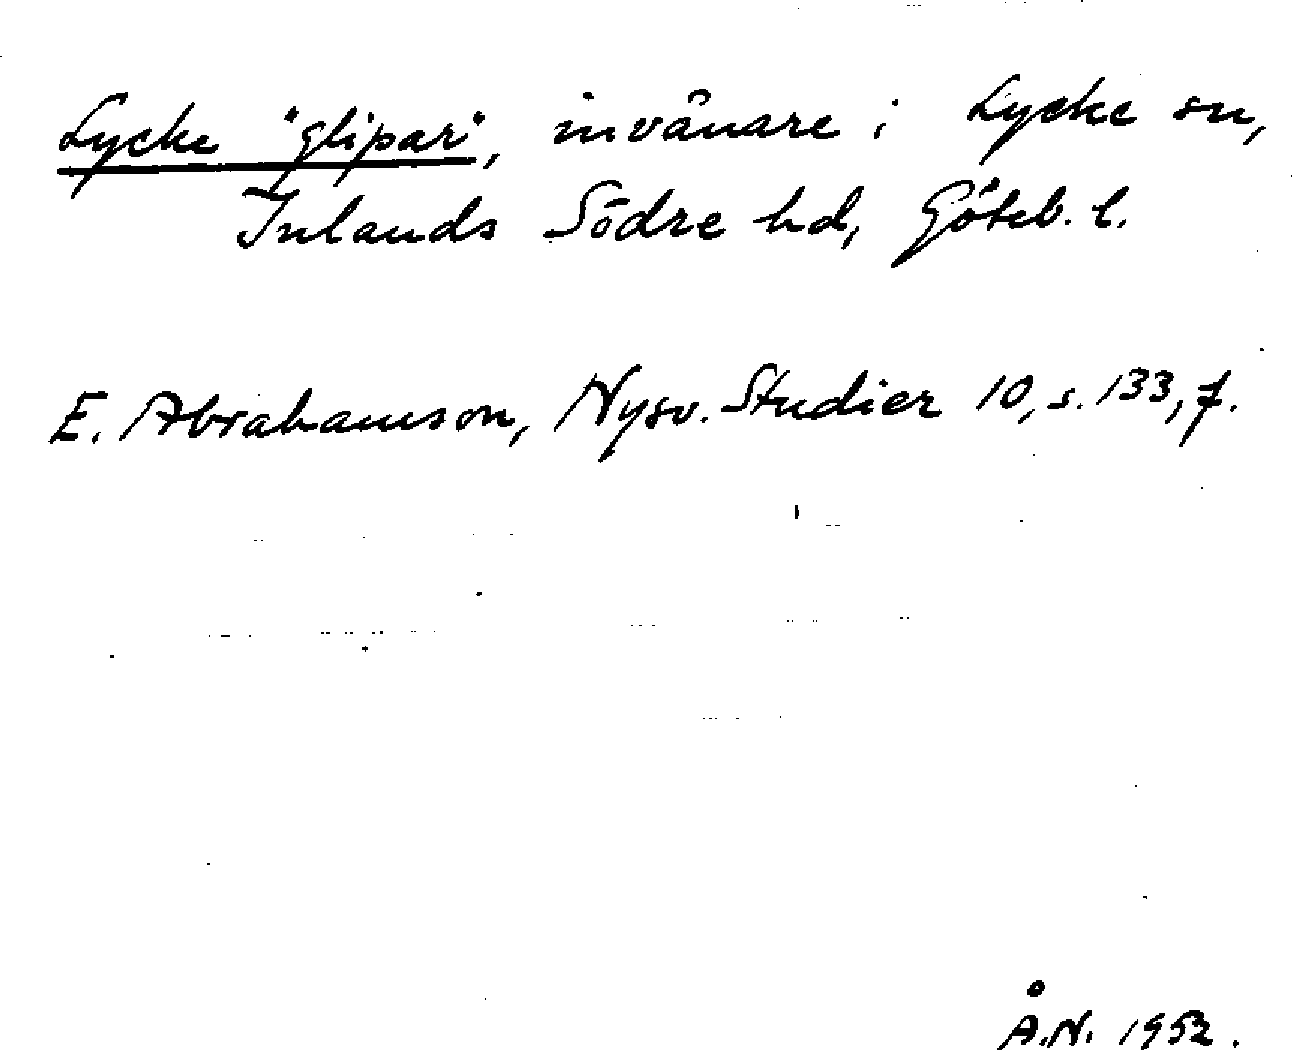 Lycke "glipar", invånare i Lycke sn,
Inlands Södre hd, Göteb. l.
E. Abrahamson, Nysv. Studier 10, s. 133, f.
Å.N. 1952.